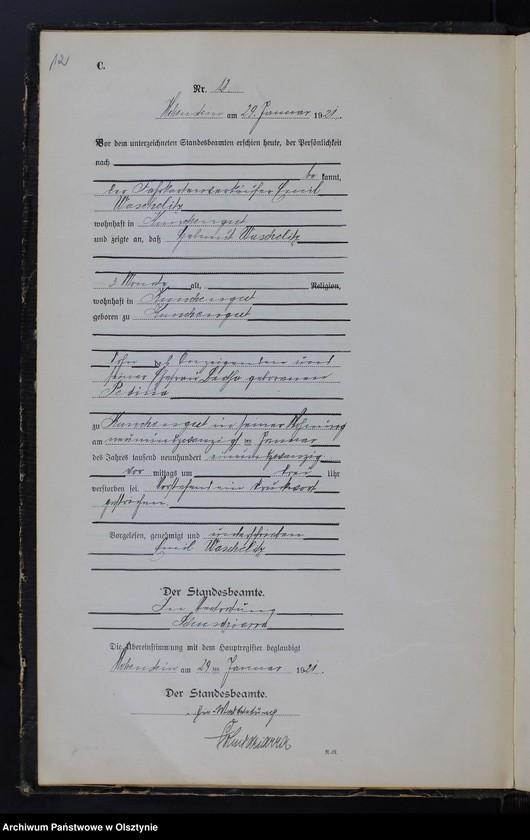 12
C.
Nr. 12.
Hohenstein am 29. Januar 1921.
Vor dem unterzeichneten Standesbeamten erschien heute, der Persönlichkeit
nach
be kannt,
der Emil
Waschelitz
wohnhaft in Kunchengut
und zeigte an, daß Helmut Waschelitz
3 Monate alt, Religion,
wohnhaft in Kunchengut
geboren zu Kunchengut
Sohn des Anzeigenden und
seiner Ehefrau geborenen
zu Kunchengut in seiner Wohnung
am neunundzwanzigsten Januar
des Jahres tausend neunhundert einundzwanzig
vor mittags um drei Uhr
verstorben sei. Vorstehend ein Druckwort
gestrichen.
Vorgelesen, genehmigt und unterschrieben
Emil Waschelitz
Der Standesbeamte.
In Vertretung
Die Übereinstimmung mit dem Hauptregister beglaubigt
Hohenstein am 29ten Januar 1921.
Der Standesbeamte.
In Vertretung
Archiwum Państwowe w Olsztynie